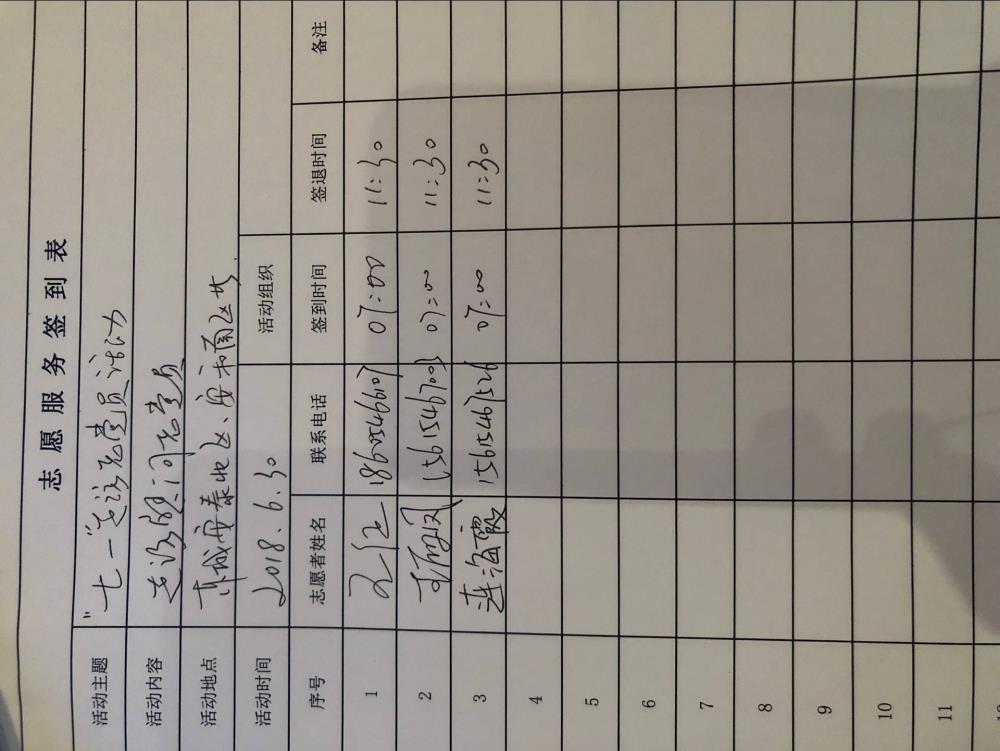 志愿服务签到表
活动主题 "七一"走访老党员活动
活动内容 走访慰问老党员
活动地点 东城安泰社区、安和南区
活动时间 2018.6.30 活动组织
序号 志愿者姓名 联系电话 签到时间 签退时间 备注
1 07:00 11:30
2 15615467003 07:00 11:30
3 连海霞 15615467526 07:00 11:30
4
5
6
7
8
9
10
11